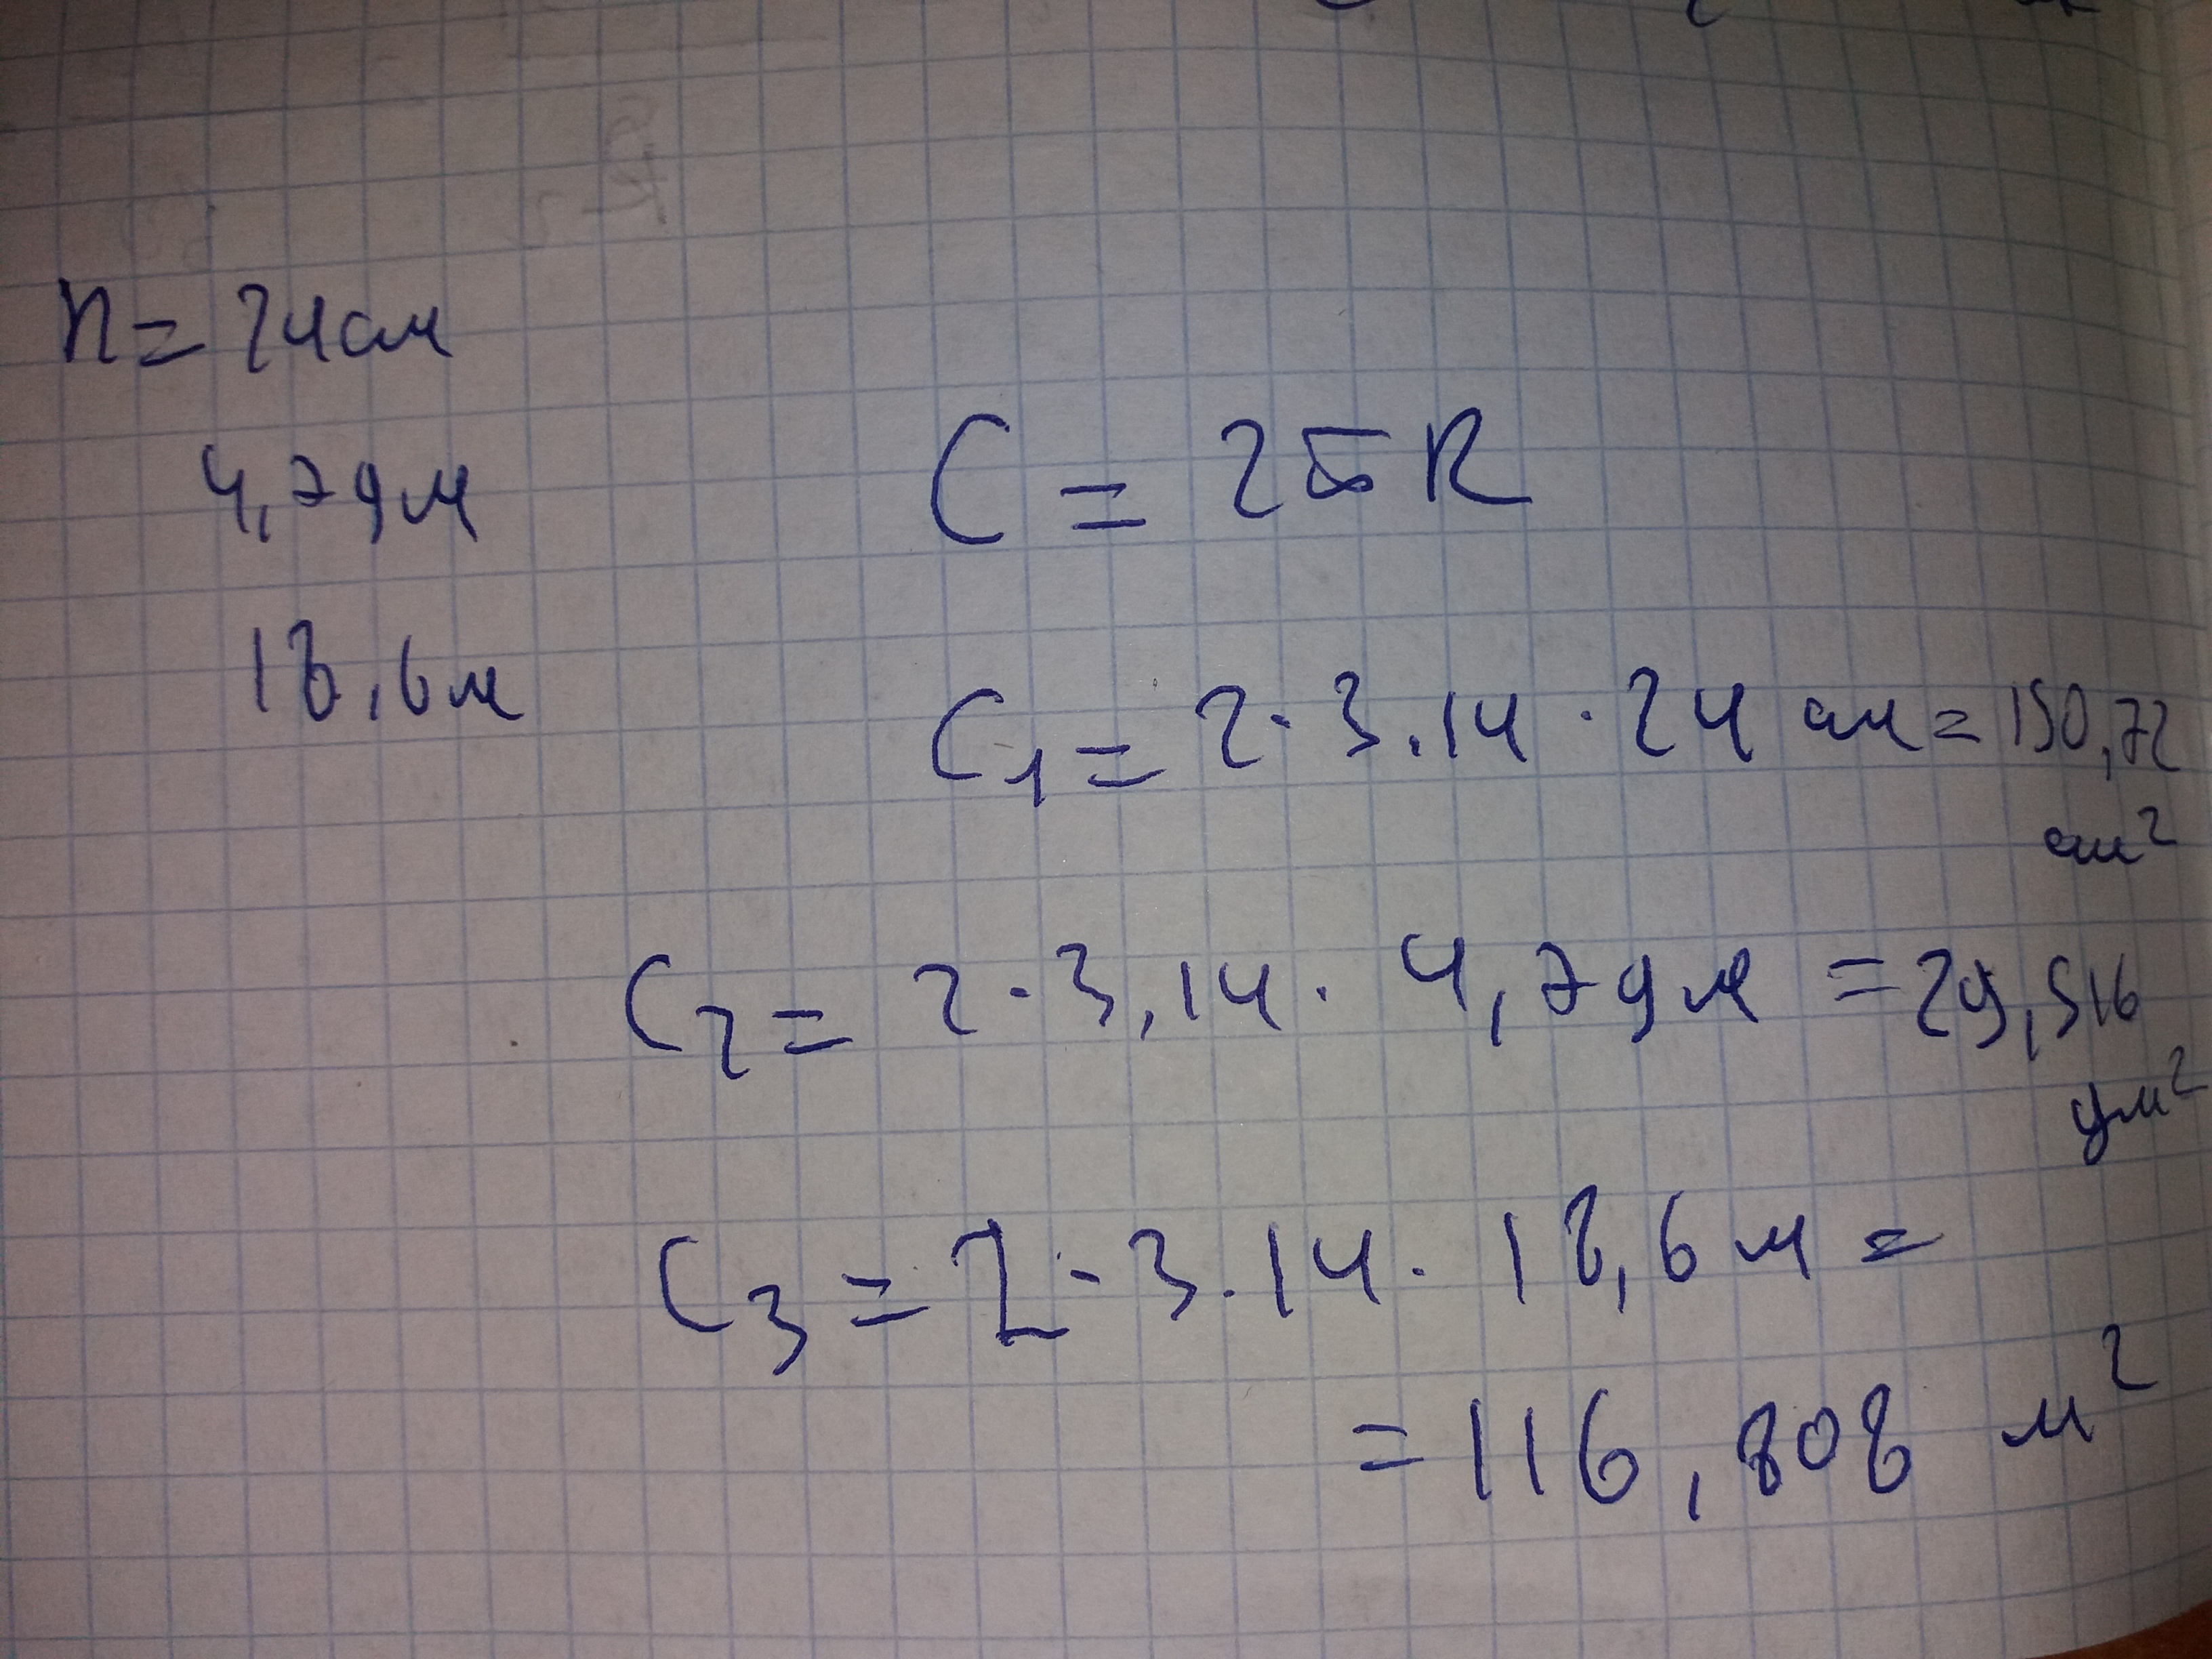 R=24см
4,7дм
18,6м
C = 2πR
C₁ = 2·3.14·24 см = 150,72 см²
C₂ = 2·3,14·4,7дм = 29,516 дм²
C₃ = 2·3·14·18,6м =
= 116,808 м²